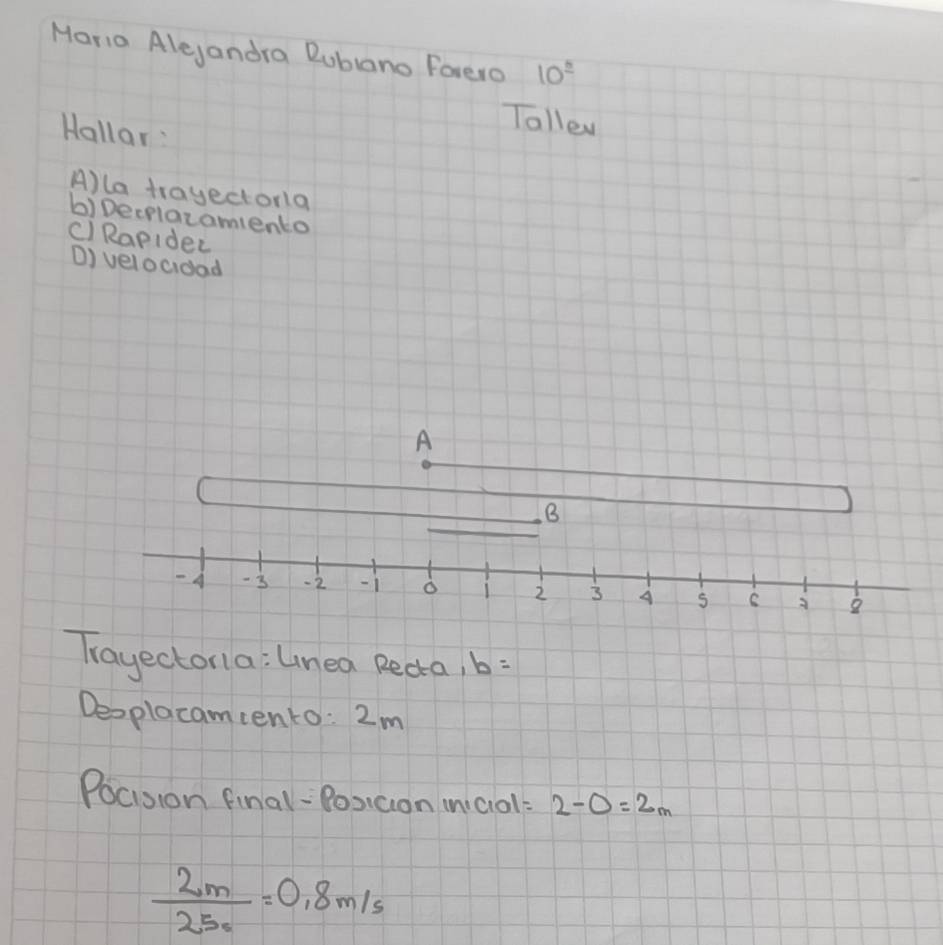 Maria Alejandra Rubiano Forero 10º
Taller
Hallar:
A) La trayectoria
b) Desplazamiento
C) Rapidez
D) velocidad
A
B
-4 -3 -2 -1 0 1 2 3 4 5 6 7 8
Trayectoria: Linea Recta, b=
Desplazamiento: 2m
Pocision final - Posicion inicial = 2-0=2m
2m
25s = 0,8m/s